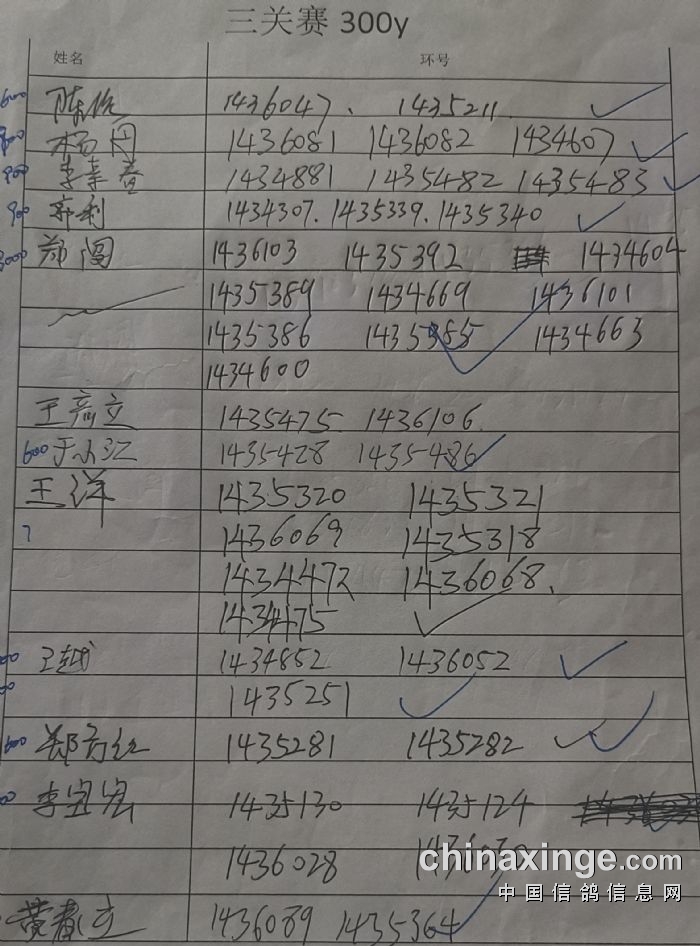 三关赛 300y
姓名 环号
600 陈 1436047. 1435211
杨丹 1436081 1436082 1434607
900 李 1434881 1435482 1435483
900 利 1434307. 1435339. 1435340
3000 郑阁 1436103 1435392 1434604
1435389 1434669 1436101
1435386 1435385 1434663
1434600
王彦立 1435475 1436106
600 于小江 1435428 1435486
王洋 1435320 1435321
7 1436069 1435318
1434472 1436068.
1434475
王越 1434852 1436052
1435251
600 郑方红 1435281 1435282
李宝宏 1435130 1435124
1436028 1436030
chinaxinge.com
中国信鸽信息网
黄春立 1436089 1435364